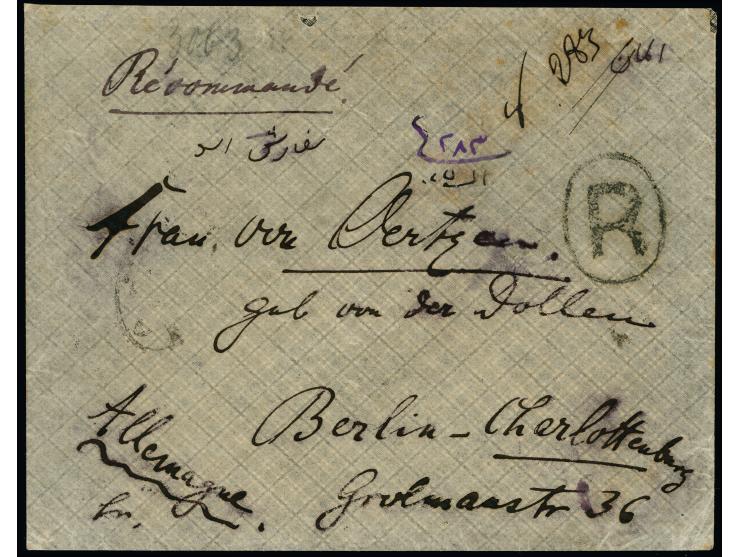 3063
№ 283
Récommandé.
سفارشی است
۲۸۳
R
Frau von Oertzen.
geb von der Dollen
Berlin-Charlottenburg
Allemagne
Grolmanstr 36